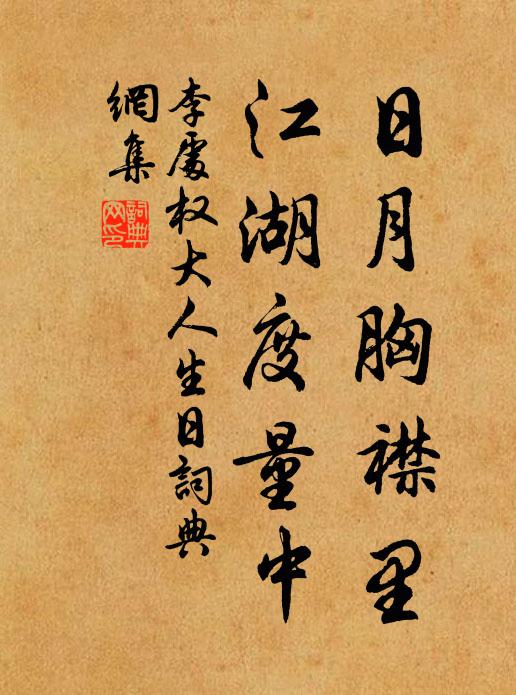 日月胸襟里
江湖度量中
李處权大人生日詞典
網集
詞典網印